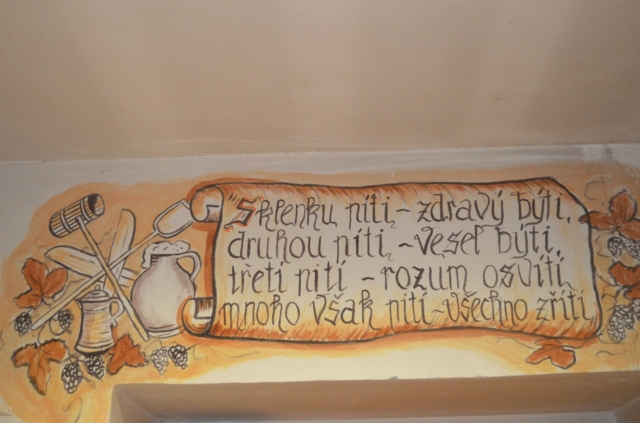 "Sklenku píti - zdravý býti,
druhou píti, - vesel býti,
třetí píti - rozum osvítí,
mnoho však píti - všechno zříti